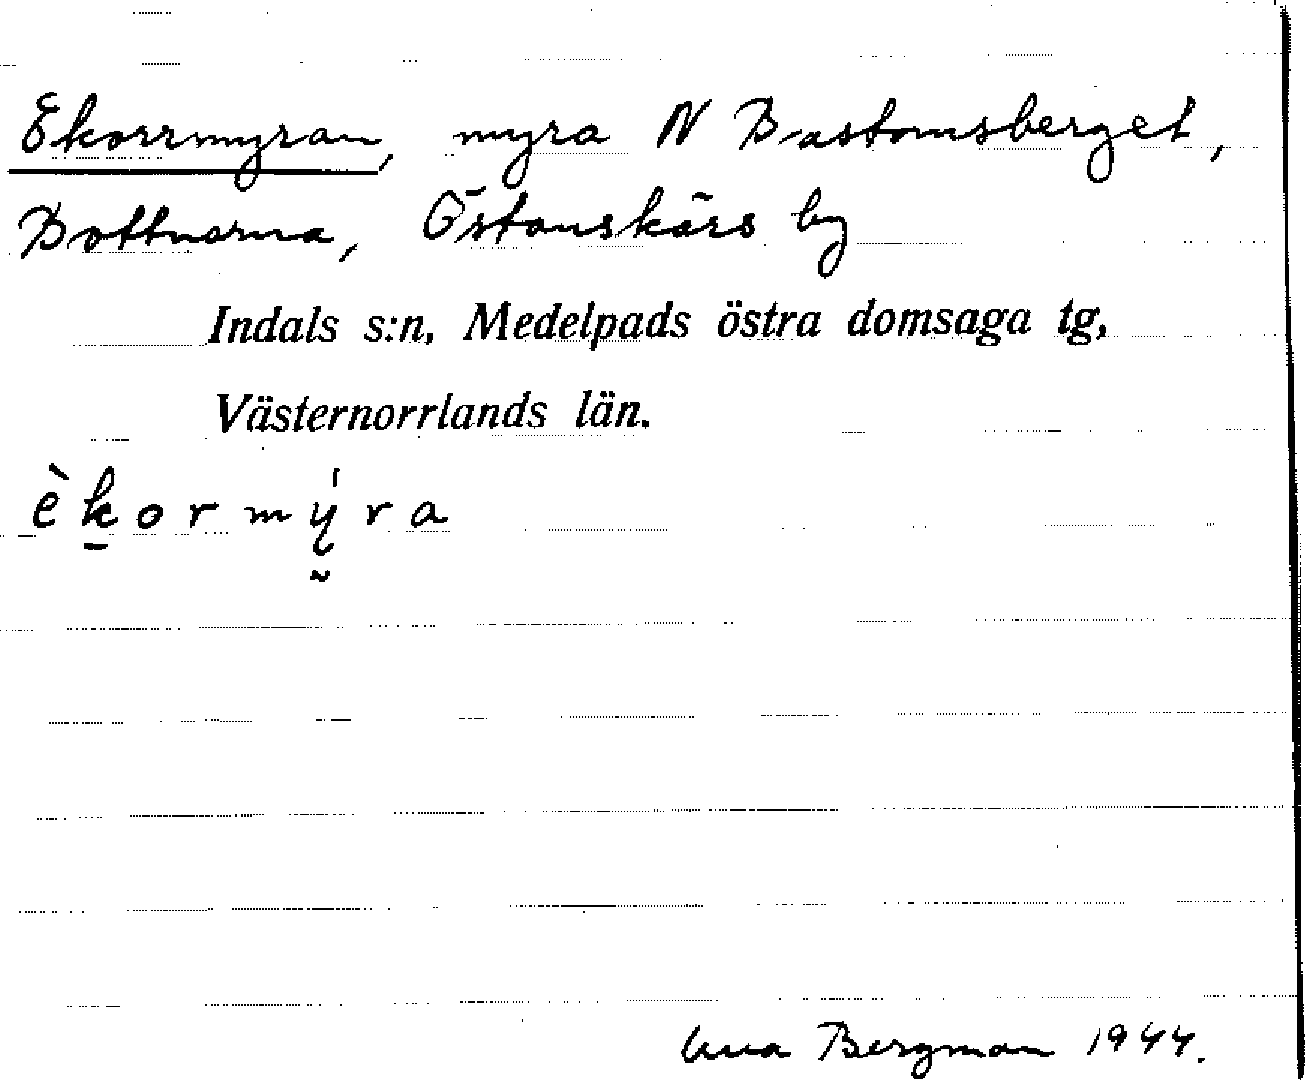 Ekorrmyran, myra N Bastomsberget,
Bottnarna, Östanskärs by
Indals s:n, Medelpads östra domsaga tg,
Västernorrlands län.
è k̲ o r m ý̰ r a
Bergman 1944.